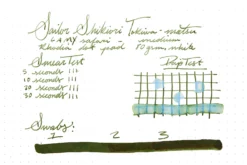 Sailor Shikiori Tokiwa-matsu
Lamy safari - medium
Rhodia dot pad 80 gram white
Smear Test Drip Test
5 seconds
10 seconds
20 seconds
30 seconds
Swabs:
1 2 3